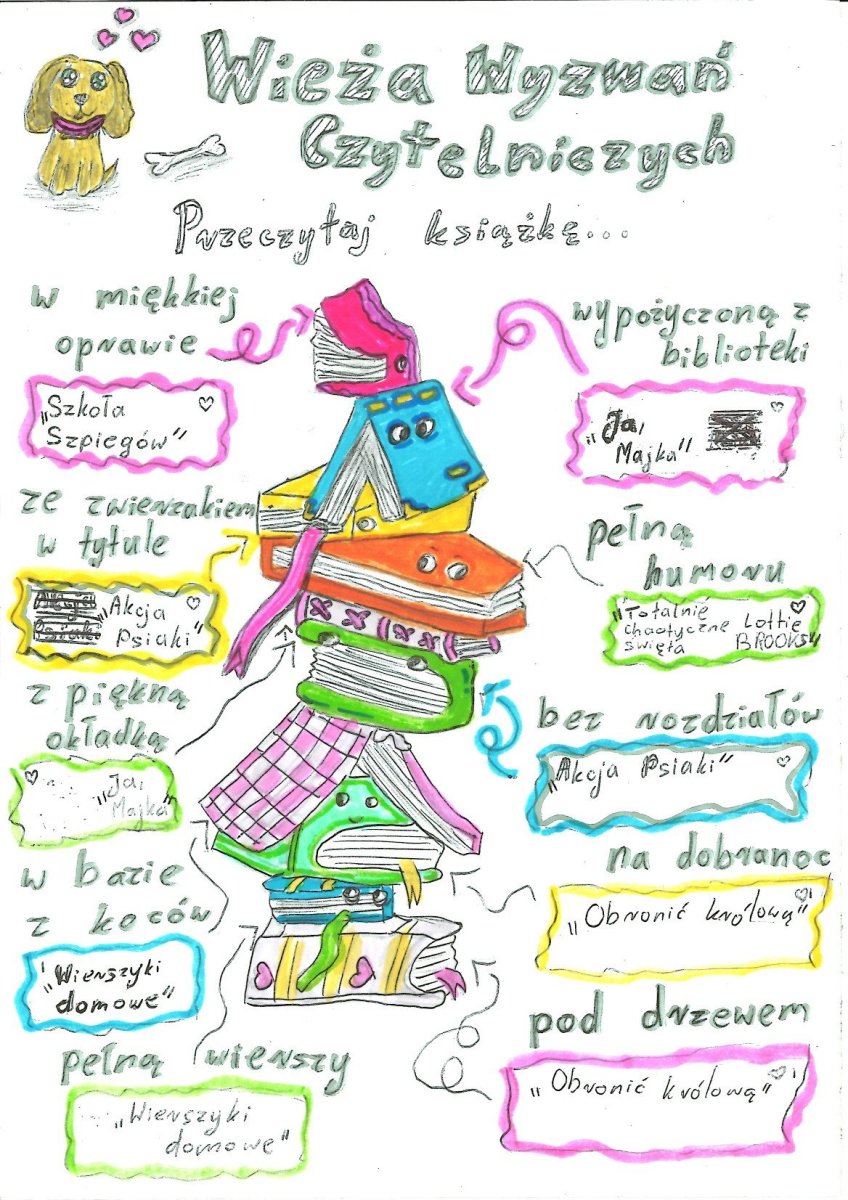 Wieża Wyzwań
Czytelniczych
Przeczytaj książkę...
w miękkiej
oprawie
"Szkoła
Szpiegów"
wypożyczoną z
biblioteki
"Ja,
Majka"
ze zwierzakiem
w tytule
"Akcja
Psiaki"
pełną
humoru
"Totalnie
chaotyczne
święta
Lottie
BROOKS"
z piękną
okładką
"Ja,
Majka"
bez rozdziałów
"Akcja Psiaki"
w bazie
z koców
"Wierszyki
domowe"
na dobranoc
"Obronić królową"
pełną wierszy
"Wierszyki
domowe"
pod drzewem
"Obronić królową"